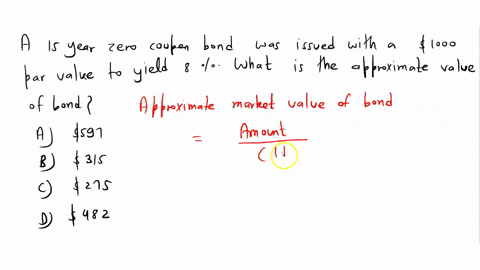 A 15 year zero coupen bond was issued with a $1000
par value to yield 8 %. What is the approximate value
of bond?
Approximate market value of bond
A) $597
B) $315
C) $275
D) $482
= Amount
(1